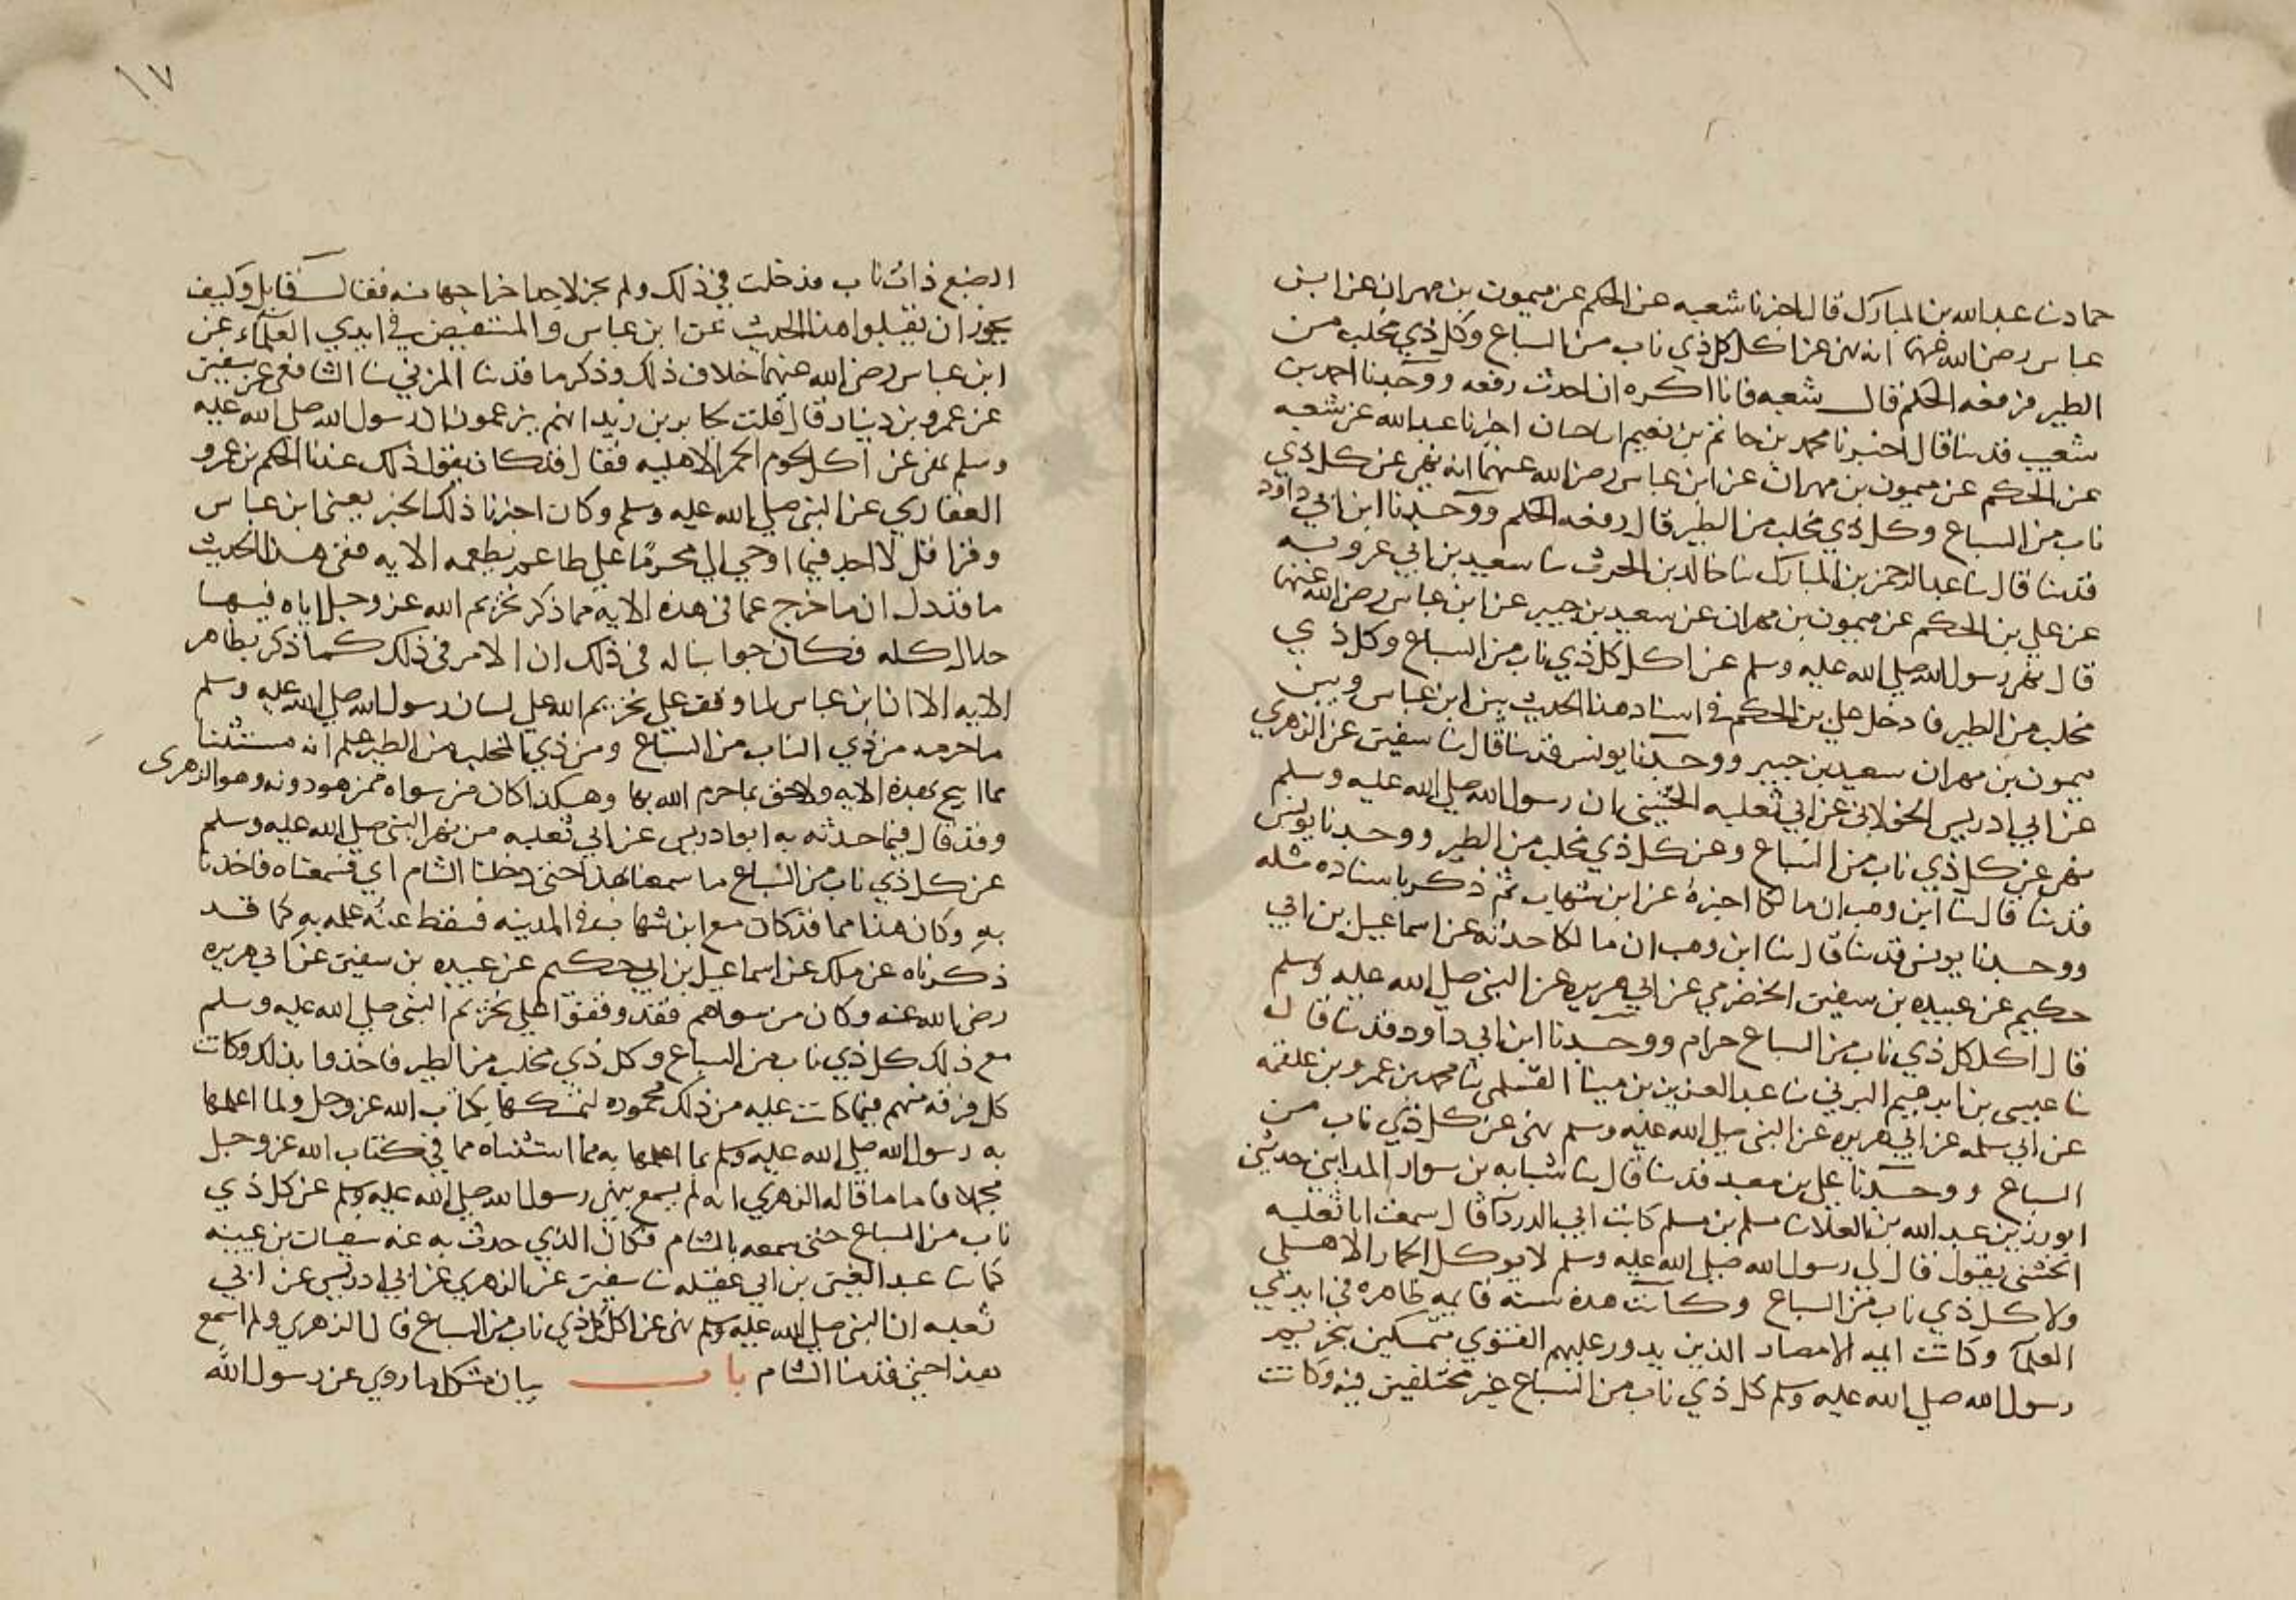 حماد نا عبد الله بن المبارك قال اخبرنا شعبه عن الحكم عن ميمون بن مهران عن ابن
عباس رضي الله عنهما انه نهى عن اكل كل ذي ناب من السباع وكل ذي مخلب من
الطير فرفعه الحكم قال شعبه فانا اكره ان احدث رفعه ووجدنا احمد بن
شعيب قد نا قال اخبرنا محمد بن حاتم بن نعيم انا حبان اخبرنا عبد الله عن شعبه
عن الحكم عن ميمون بن مهران عن ابن عباس رضي الله عنهما انه نهى عن كل ذي
ناب من السباع وكل ذي مخلب من الطير قال رفعه الحكم ووجدنا ابن ابي داود
قد نا قال نا عبد الرحمن بن المبارك نا خالد بن الحرث نا سعيد بن ابي عروبه
عن علي بن الحكم عن ميمون بن مهران عن سعيد بن جبير عن ابن عباس رضي الله عنهما
قال نهى رسول الله صلى الله عليه وسلم عن اكل كل ذي ناب من السباع وكل ذي
مخلب من الطير فادخل علي بن الحكم في اسناد هذا الحديث بين ابن عباس وبين
ميمون بن مهران سعيد بن جبير ووجدنا يونس قد نا قال نا سفين عن الزهري
عن ابي ادريس الخولاني عن ابي ثعلبه الخشني ان رسول الله صلى الله عليه وسلم
نهى عن كل ذي ناب من السباع وعن كل ذي مخلب من الطير ووجدنا يونس
قد نا قال نا ابن وهب ان مالكا اخبره عن ابن شهاب ثم ذكر باسناده مثله
ووجدنا يونس قد نا قال نا ابن وهب ان مالكا حدثه عن اسماعيل بن ابي
حكيم عن عبيده بن سفين الحضرمي عن ابي هريره عن النبي صلى الله عليه وسلم
قال اكل كل ذي ناب من السباع حرام ووجدنا ابن ابي داود قد نا قال
نا عيسى بن ابراهيم البركي نا عبد العزيز بن القسملي نا محمد بن عمرو بن علقمه
عن ابي سلمه عن ابي هريره عن النبي صلى الله عليه وسلم نهى عن كل ذي ناب من
السباع ووجدنا علي بن معبد قد نا قال نا شبابه بن سوار المدايني حدثني
ابو زرين عبد الله بن العلاء نا مسلم بن مسلم كاتب ابي الدرداء قال سمعت ابا ثعلبه
الخشني يقول قال لي رسول الله صلى الله عليه وسلم لا يوكل الحمار الاهلي
ولا كل ذي ناب من السباع وكانت هذه سنه قايمه ظاهره في ايدي
العلماء وكانت ايمه الامصار الذين يدور عليهم الفتوى متمسكين بتحريم
رسول الله صلى الله عليه وسلم كل ذي ناب من السباع غير مختلفين فيه وكانت
١٧
الضبع ذات ناب فدخلت في ذلك ولم يجز لاحد اخراجها منه فقال قايل وكيف
يجوز ان يقبلوا هذا الحديث عن ابن عباس والمستفيض في ايدي العلماء عن
ابن عباس رضي الله عنهما خلاف ذلك وذكر ما قد نا المزني نا الشافعي عن سفين
عن عمرو بن دينار قال قلت لجابر بن زيد انهم يزعمون ان رسول الله صلى الله عليه
وسلم نهى عن اكل لحوم الحمر الاهليه فقال قد كان يقول ذلك عندنا الحكم بن عمرو
الغفاري عن النبي صلى الله عليه وسلم وكان اخبرنا ذلك البحر يعني ابن عباس
وقرا قل لا اجد فيما اوحي الي محرمًا على طاعم يطعمه الايه ففي هذا الحديث
ما قد دل ان ما خرج عما في هذه الايه مما ذكر تحريم الله عز وجل اياه فيها
حلال كله فكان جوابنا له في ذلك ان الامر في ذلك كما ذكر بظاهر
الايه الا ان ابن عباس لما وقف على تحريم الله على لسان رسول الله صلى الله عليه وسلم
ما حرمه من ذي الناب من السباع ومن ذي المخلب من الطير علم انه مستثنا
مما ابيح بهذه الايه ولاحق بما حرم الله بها وهكذا كان من سواه ممن هو دونه وهو الزهرى
وقد قال فيما حدثه به ابو ادريس عن ابي ثعلبه من نهى النبي صلى الله عليه وسلم
عن كل ذي ناب من السباع ما سمعنا بهذا حتى دخلنا الشام اي فسمعناه فاخذنا
به وكان هذا مما قد كان مع ابن شهاب في المدينه فسقط عنه علمه به كما قد
ذكرناه عن ملك عن اسماعيل بن ابي حكيم عن عبيده بن سفين عن ابي هريره
رضي الله عنه وكان من سواهم فقد وقفوا على تحريم النبي صلى الله عليه وسلم
مع ذلك كل ذي ناب من السباع وكل ذي مخلب من الطير فاخذوا بذلك وكانت
كل فرقه منهم فيما كانت عليه من ذلك محموده لتمسكها بكتاب الله عز وجل ولما اعلمها
به رسول الله صلى الله عليه وسلم بما اعلمها به مما استثناه مما في كتاب الله عز وجل
مجملا فاما ما قاله الزهري انه لم يسمع بنهي رسول الله صلى الله عليه وسلم عن كل ذي
ناب من السباع حتى سمعه بالشام فكان الذي حدث به عنه سفيان بن عيينه
كما نا عبد الغني بن ابي عقيله نا سفين عن الزهري عن ابي ادريس عن ابي
ثعلبه ان النبي صلى الله عليه وسلم نهى عن اكل كل ذي ناب من السباع قال الزهري ولم اسمع
بهذا حتى قدمنا الشام باب بيان مشكل ما روي عن رسول الله